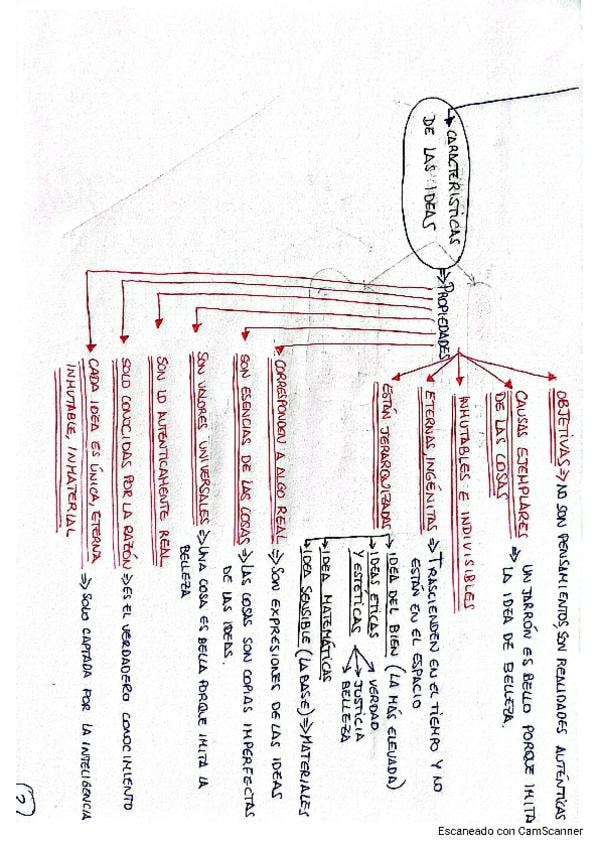 CARACTERISTICAS
DE LAS IDEAS
⇒ PROPIEDADES
OBJETIVAS ⇒ NO SON PENSAMIENTOS, SON REALIDADES AUTÉNTICAS
CAUSAS EJEMPLARES
DE LAS COSAS
⇒ UN JARRÓN ES BELLO PORQUE IMITA
LA IDEA DE BELLEZA.
INMUTABLES E INDIVISIBLES
ETERNAS, INGÉNITAS ⇒ TRASCIENDEN EN EL TIEMPO Y NO
ESTÁN EN EL ESPACIO
ESTÁN JERARQUIZADAS
IDEA DEL BIEN (LA MÁS ELEVADA)
IDEAS ETICAS
Y ESTÉTICAS
VERDAD
JUSTICIA
BELLEZA
IDEA MATEMÁTICAS
IDEA SENSIBLE (LA BASE) ⇒ MATERIALES
CORRESPONDEN A ALGO REAL ⇒ SON EXPRESIONES DE LAS IDEAS
SON ESENCIAS DE LAS COSAS ⇒ LAS COSAS SON COPIAS IMPERFECTAS
DE LAS IDEAS.
SON VALORES UNIVERSALES ⇒ UNA COSA ES BELLA PORQUE IMITA LA
BELLEZA
SON LO AUTÉNTICAMENTE REAL
SOLO CONOCIDAS POR LA RAZÓN ⇒ ES EL VERDADERO CONOCIMIENTO
CADA IDEA ES ÚNICA, ETERNA
INMUTABLE, INMATERIAL
⇒ SOLO CAPTADA POR LA INTELIGENCIA
Escaneado con CamScanner